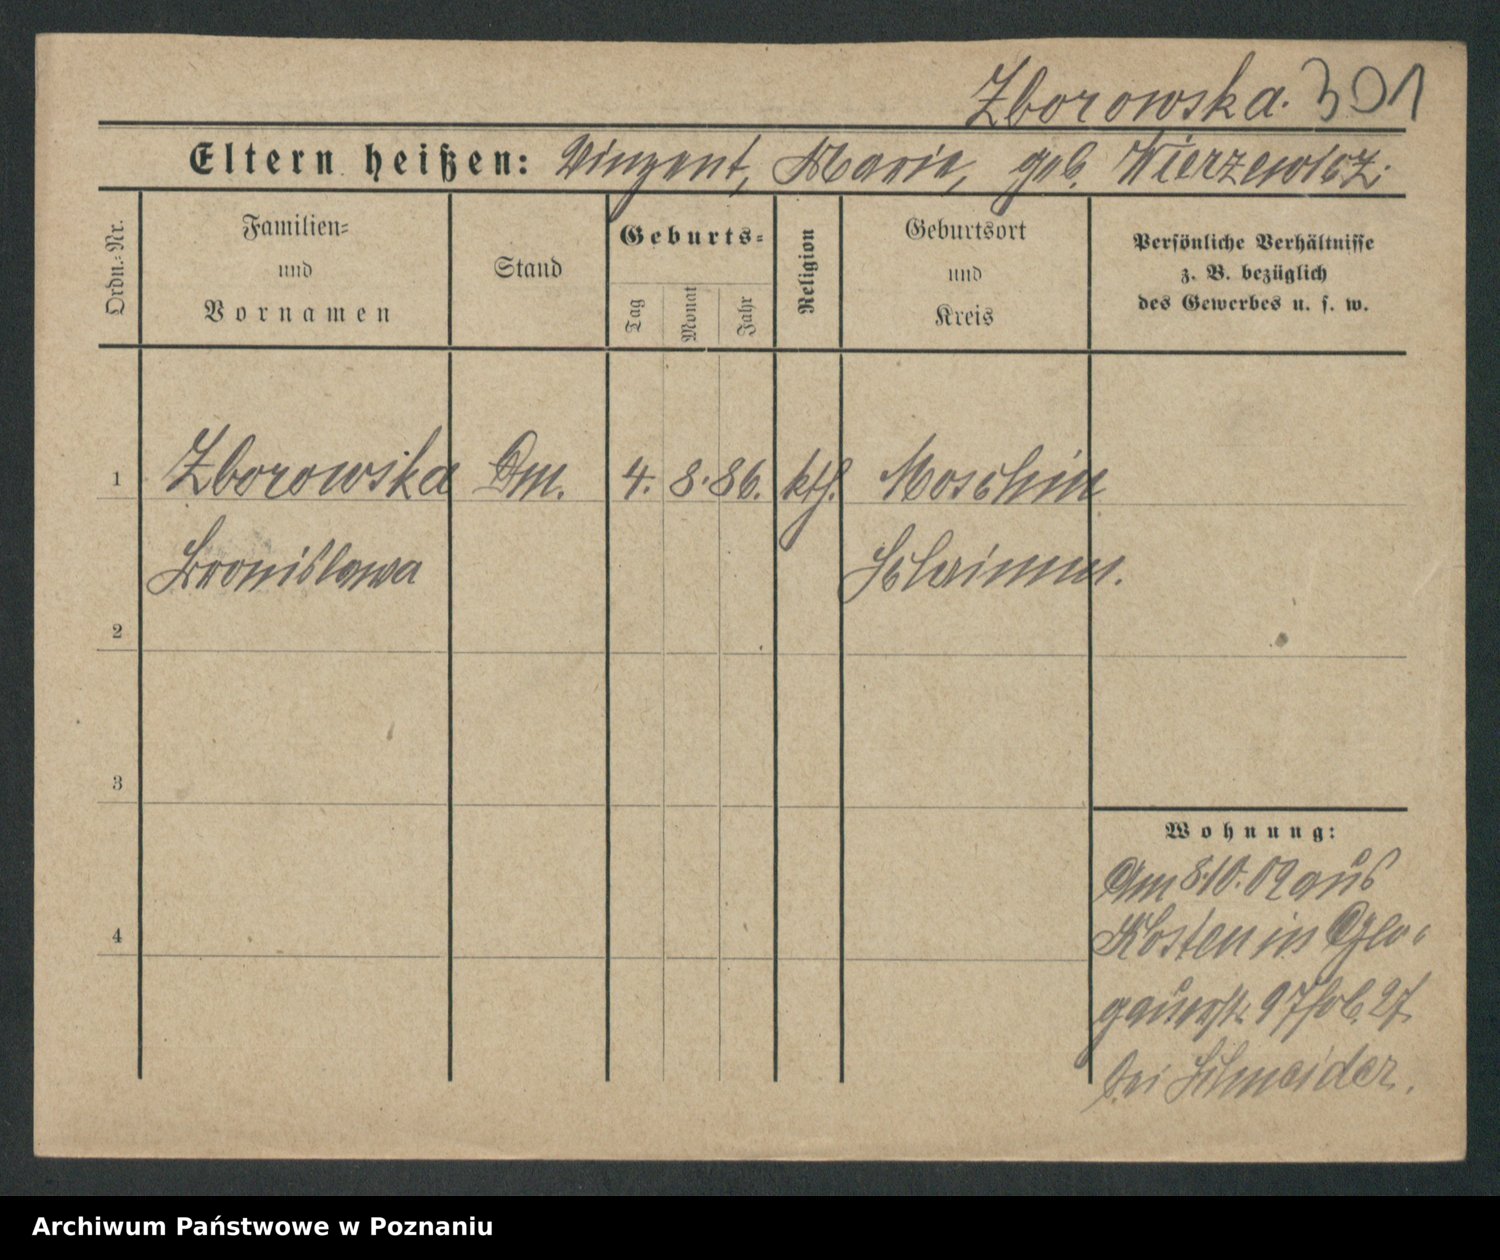 Zborowska. 301
Eltern heißen: Vinzent, Marie, geb. Wierzewicz.
Ordn.-Nr.
Familien-
und
Vornamen
Stand
Geburts-
Tag
Monat
Jahr
Religion
Geburtsort
und
Kreis
Persönliche Verhältnisse
z. B. bezüglich
des Gewerbes u. s. w.
1 Zborowska Dm. 4. 8. 86. kth. Moschin
Bronislawa Schrimm.
2
3
4
Wohnung:
Am 8.10.02 aus
Kosten in Glo-
gauerstr. 97
bei Schneider.
Archiwum Państwowe w Poznaniu